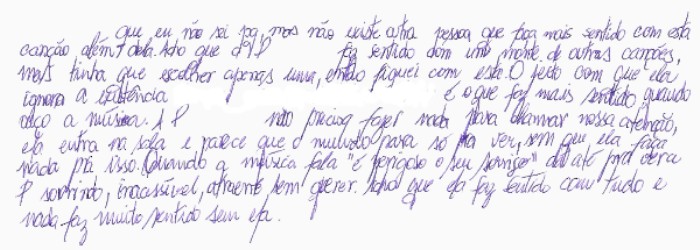 que eu não sei pq, mas não existe outra pessoa que faça mais sentido com esta
canção além dela. Acho que a P faz sentido com um monte de outras canções,
mas tinha que escolher apenas uma, então fiquei com esta. O jeito com que ela
ignora a existência é o que faz mais sentido, quando
ouço a música. A P não precisa fazer nada para chamar nossa atenção,
ela entra na sala e parece que o mundo para só pra ver, sem que ela faça
nada pra isso. Quando a música fala "é perigoso o seu sorriso" dá até pra ver a
P sorrindo, inacessível, atraente sem querer. Acho que ela faz sentido com tudo e
nada faz muito sentido sem ela.